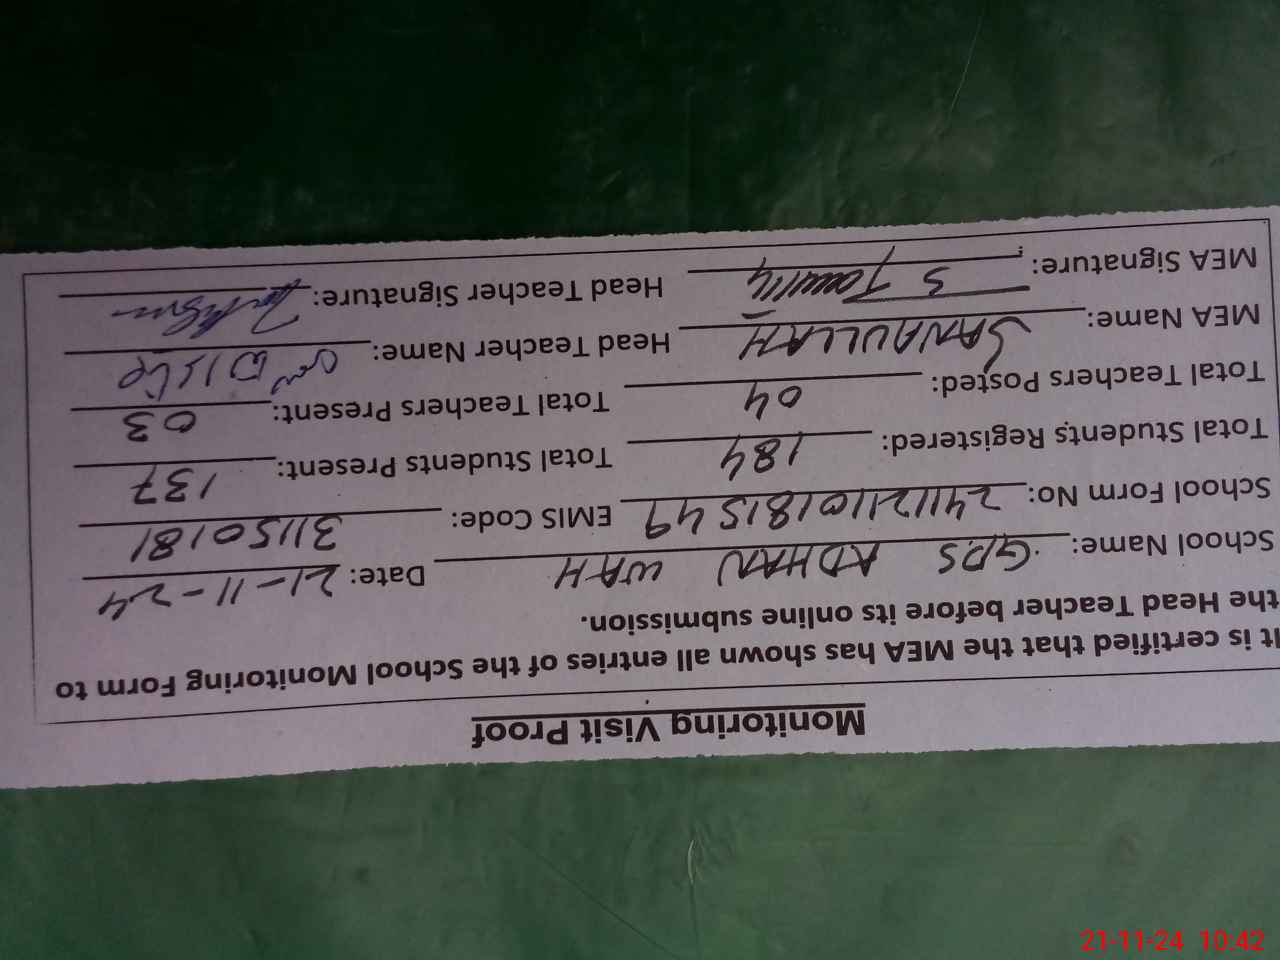 Monitoring Visit Proof
It is certified that the MEA has shown all entries of the School Monitoring Form to
the Head Teacher before its online submission.
School Name: GPS ADHAN WAH Date: 21-11-24
School Form No: 24112110181549 EMIS Code: 31150181
Total Students Registered: 184 Total Students Present: 137
Total Teachers Posted: 04 Total Teachers Present: 03
MEA Name: SANAULLAH Head Teacher Name:
MEA Signature: Head Teacher Signature:
21-11-24 10:42